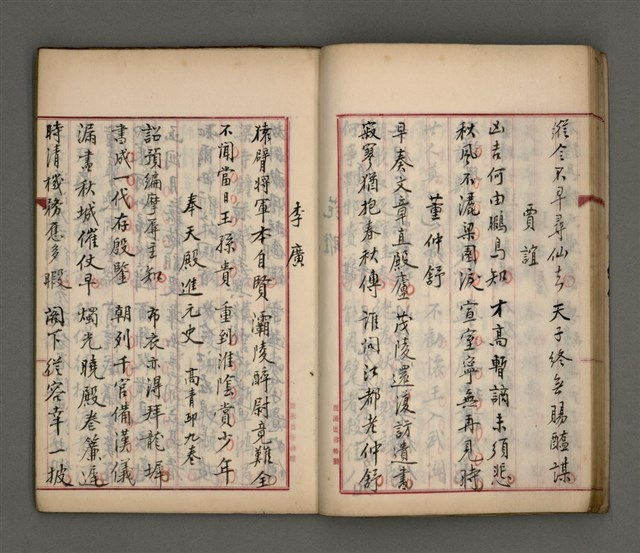 縱令不早尋仙去 天子終無賜醢謀
賈誼
凶吉何由鵩鳥知 才高暫謫未須悲
秋風不灑梁園淚 宣室寧無再見時
董仲舒
早奏文章直殿廬 茂陵還復訪遺書
寂寥猶抱春秋傳 誰問江都老仲舒
李廣
猿臂將軍本自賢 灞陵醉尉竟難全
不聞當日王孫貴 重到淮陰賞少年
奉天殿進元史 高青邱九卷
詔預編摩辱主知 布衣亦得拜龍墀
書成一代存殷鑒 朝列千官備漢儀
漏盡秋城催仗早 燭光曉殿卷簾遲
時清機務應多暇 閣下從容幸一披